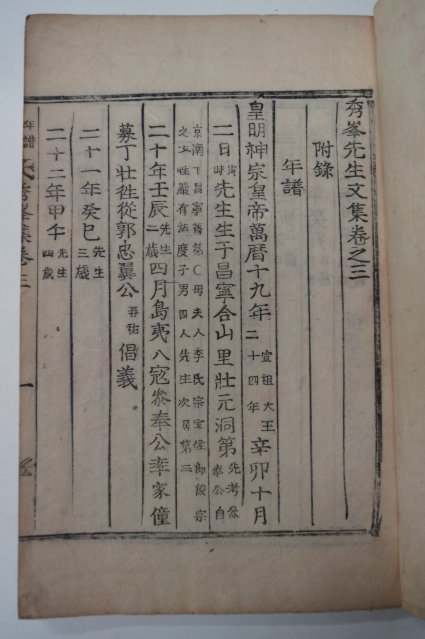 秀峯先生文集卷之三
附錄
年譜
皇明神宗皇帝萬曆十九年宣祖大王二十四年辛卯十月
二日寅時先生生于昌寧合山里壯元洞第先考叅奉公自
京南下昌寧舊第○母夫人李氏宗室侄郎段宗
之女性嚴有法度子男四人先生次居第三
二十年壬辰先生二歲四月島夷八寇叅奉公率家僮
募丁壯往從郭忠翼公再祐倡義
二十一年癸巳先生三歲
二十二年甲午先生四歲
年譜 秀峯集卷三 一